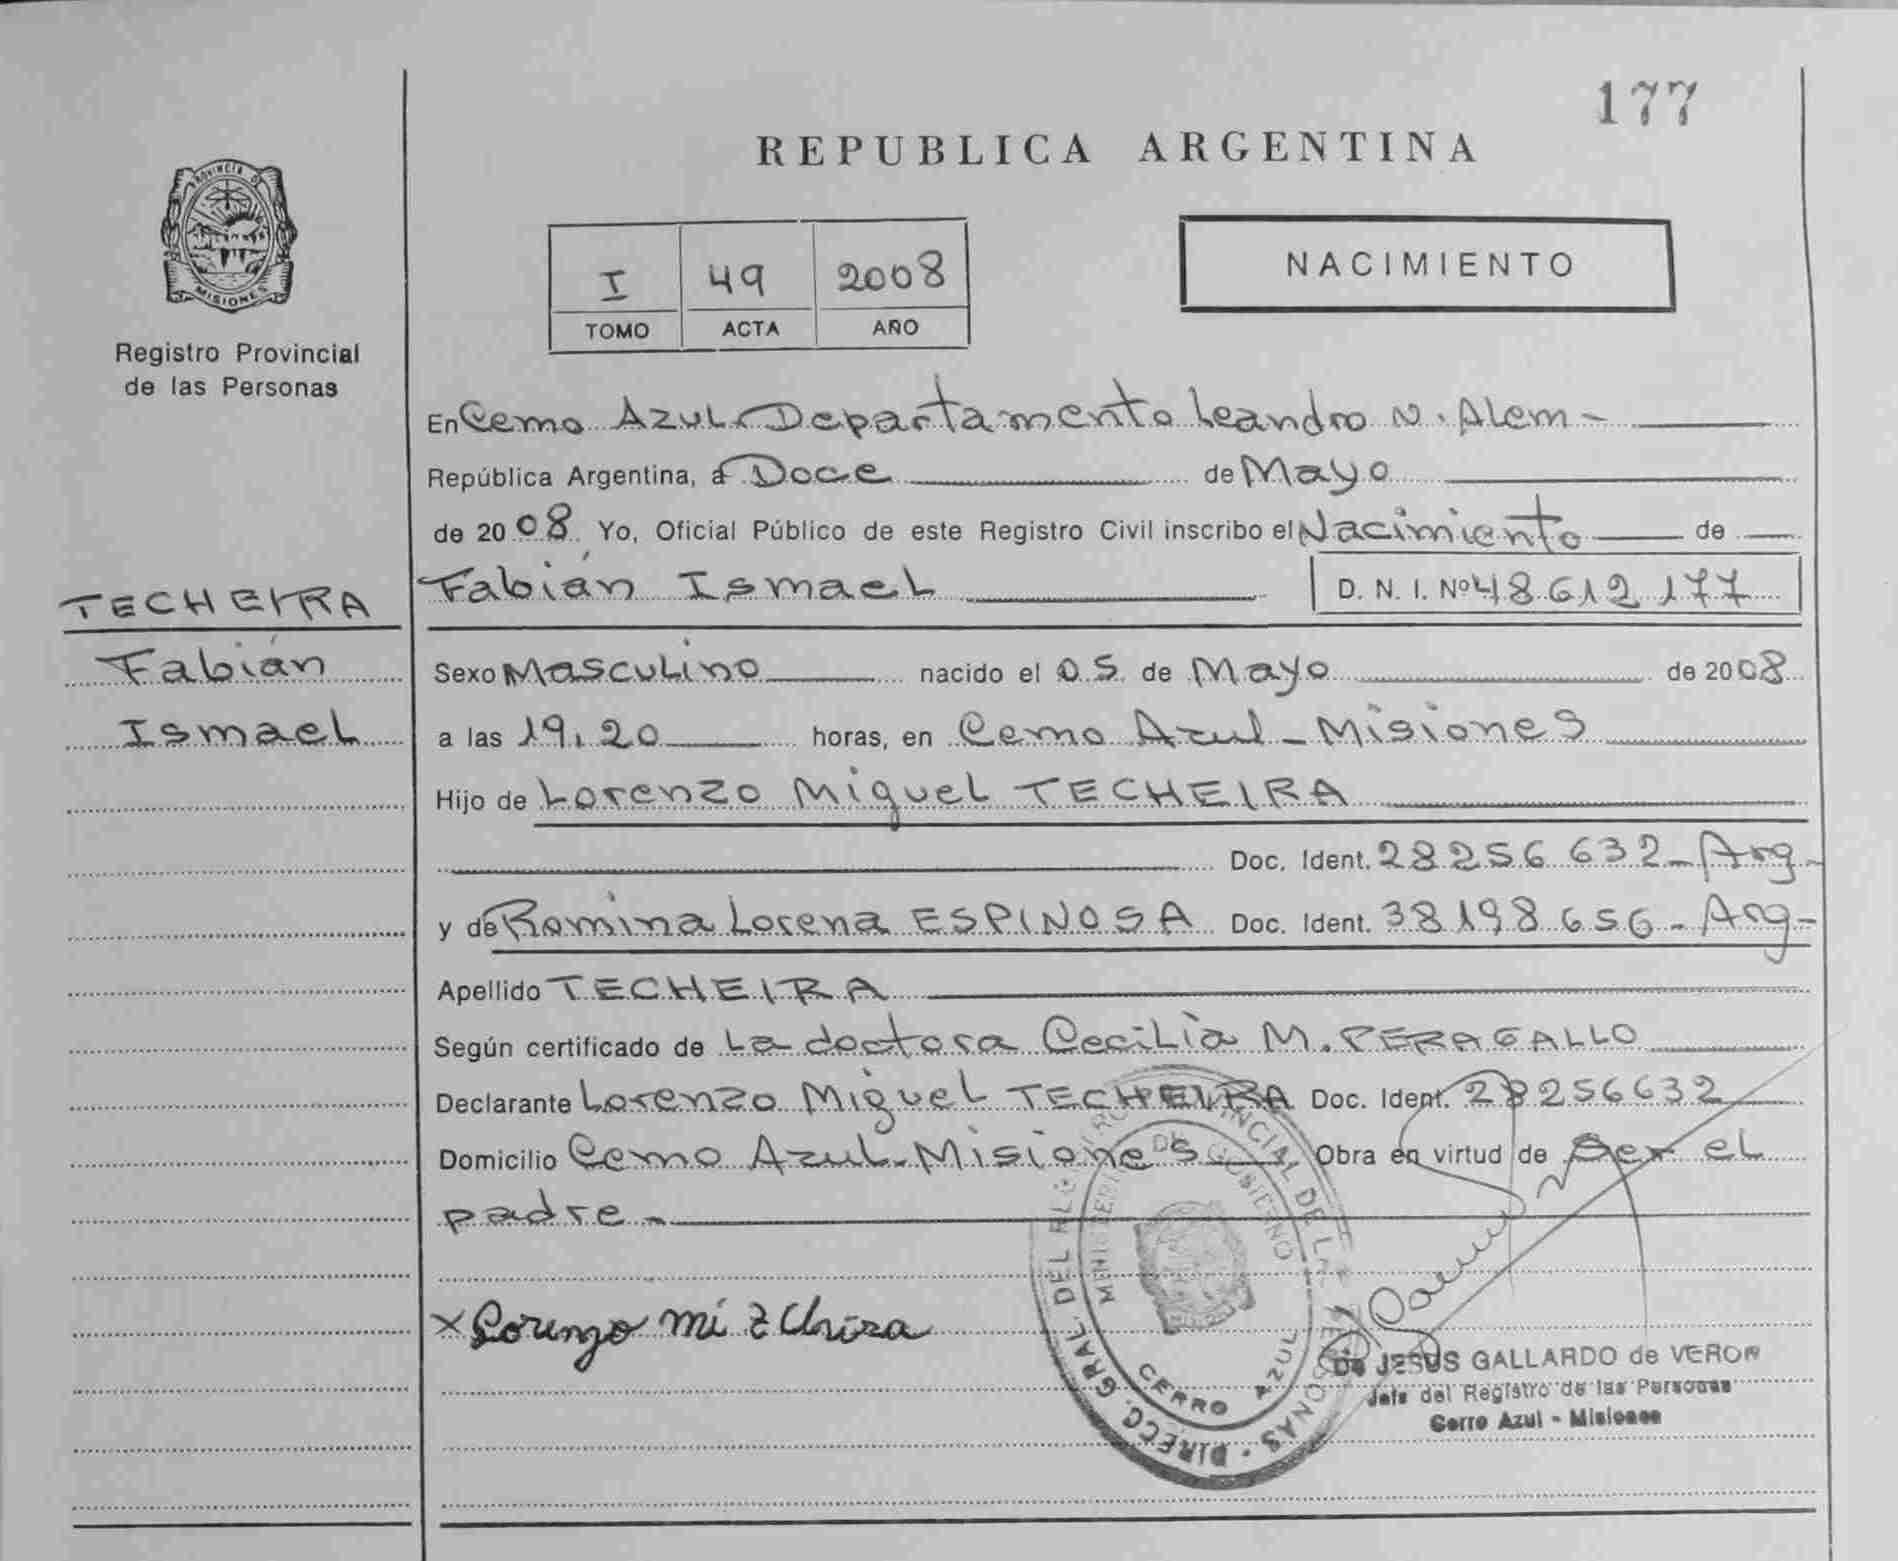 177
REPUBLICA ARGENTINA
PROVINCIA DE
MISIONES
Registro Provincial
de las Personas
I 49 2008
TOMO ACTA AÑO
NACIMIENTO
En Cerro Azul Departamento Leandro N. Alem -
República Argentina, a Doce de Mayo
de 2008 Yo, Oficial Público de este Registro Civil inscribo el Nacimiento de
Fabián Ismael D. N. I. Nº 48.612.177
TECHEIRA
Fabián
Ismael
Sexo Masculino nacido el 05 de Mayo de 2008
a las 19,20 horas, en Cerro Azul - Misiones
Hijo de Lorenzo Miguel TECHEIRA
Doc. Ident. 28256632 - Arg -
y de Romina Lorena ESPINOSA Doc. Ident. 38198656 - Arg -
Apellido TECHEIRA
Según certificado de La doctora Cecilia M. PERAGALLO
Declarante Lorenzo Miguel TECHEIRA Doc. Ident. 28256632
Domicilio Cerro Azul - Misiones Obra en virtud de Ser el
padre -
x Lorenzo mi
DIRECC. GRAL. DEL REG. PROVINCIAL DE LAS PERSONAS
MINISTERIO DE GOBIERNO
CERRO AZUL
De JESUS GALLARDO de VERON
Jefe del Registro de las Personas
Cerro Azul - Misiones